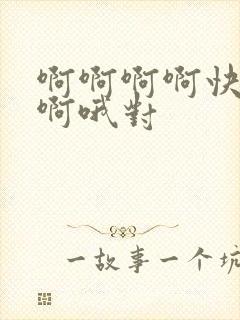 啊啊啊啊快
啊哦對
一故事一个坑